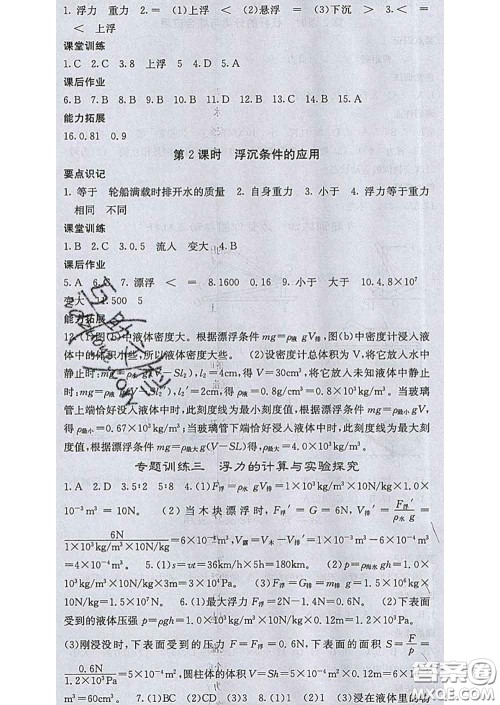 1.浮力 重力 2.= (1)上浮 < (2)悬浮 = (3)下沉 > 3.< =
< 上浮
课堂训练
1.C 2.C 3.8 上浮 5 4.D 5.A
课后作业
6.B 7.B 8.B 9.B 10.B 11.D 12.B 13.C 14.B 15.A
能力拓展
16.0.81 0.9
第2课时 浮沉条件的应用
要点识记
1.等于 轮船满载时排开水的质量 2.自身重力 3.小于 4.浮力等于重力
相同 不同
课堂训练
1.B 2.C 3.0.5 流入 变大 4.B
课后作业
5.A 6.C 7.漂浮 < = 8.1600 0.16 9.小于 大于 10.4.8×10⁷
变大 11.500 5
能力拓展
12.(1)图(b)中液体密度大。根据漂浮条件mg=ρ液gV排,图(b)中密度计浸入液
体中的体积小些,所以液体密度大些。 (2)设密度计总体积为V,将它放入水中
静止时:mg=ρ水g(V-Sl₂),l₂=4cm,得V=30cm³,将它放入未知液体中静止
时:mg=ρ液g(V-Sl₂′),l₂′=2cm,得ρ液=0.8g/cm³=0.8×10³kg/m³。当玻璃
管上端恰好没入液体中时,此刻度线为最小刻度值,根据漂浮条件:mg=ρ最小gV,
得ρ最小=0.67×10³kg/m³;当玻璃管下端恰好没入液体中时,此刻度线为最大刻
度值,根据漂浮条件:mg=ρ最大g(V-SL),得ρ最大=4.0×10³kg/m³。
专题训练三 浮力的计算与实验探究
1.A 2.D 3.5∶2 5∶8 4.(1)F浮=ρ水gV排=1×10³kg/m³×10N/kg×1.0×
10⁻³m³=10N。 (2)当木块漂浮时,F浮′=G=6N,V排′=F浮′/ρ水g=
6N/1×10³kg/m³×10N/kg=6×10⁻⁴m³,V露=V木-V排′=1×10⁻³m³-6×10⁻⁴m³
=4×10⁻⁴m³。 5.(1)s=vt=36km/h×5h=180km。 (2)p=ρ海水gh=1.0×
10³kg/m³×10N/kg×3m=3×10⁴Pa。 (3)F浮=G排=m排g=1.5×10⁶kg×10
N/kg=1.5×10⁷N。 6.(1)最大浮力F浮=2N-1.4N=0.6N。 (2)下表面
受到的液体压强p=ρgh=1.0×10³kg/m³×10N/kg×0.12m=1.2×10³Pa。
(3)刚浸没时,下表面受到的压力F=F浮=0.6N,下表面的面积S=F/p=
0.6N/1.2×10³Pa=5×10⁻⁴m²,圆柱体的体积V=Sh=5×10⁻⁴m²×0.12m=6×10⁻⁵
m³=60cm³。 7.(1)BC (2)CD (3)3 8.(1)1 (3)浸在液体里的物